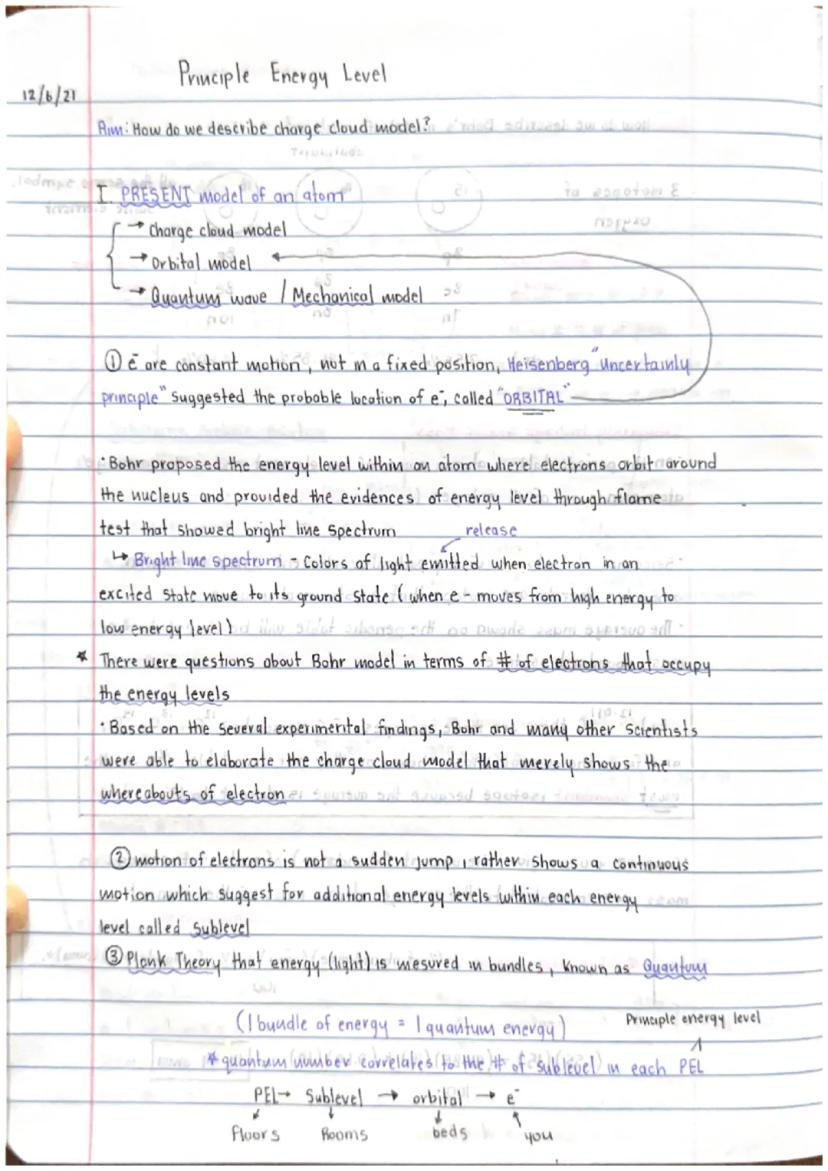 Principle Energy Level
12/6/21
Aim: How do we describe charge cloud model?
I. PRESENT model of an atom
→ charge cloud model
→ Orbital model
→ Quantum wave / Mechanical model
① e⁻ are constant motion, not in a fixed position, Heisenberg "uncertainly
principle" suggested the probable location of e⁻, called "ORBITAL"
· Bohr proposed the energy level within an atom where electrons orbit around
the nucleus and provided the evidences of energy level through flame
test that showed bright line spectrum
release
↳ Bright line spectrum - Colors of light emitted when electron in an
excited state move to its ground state (when e - moves from high energy to
low energy level)
* There were questions about Bohr model in terms of # of electrons that occupy
the energy levels
· Based on the several experimental findings, Bohr and many other Scientists
were able to elaborate the charge cloud model that merely shows the
whereabouts of electron
② motion of electrons is not a sudden jump, rather shows a continuous
motion which suggest for additional energy levels within each energy
level called sublevel
③ Plank Theory that energy (light) is mesured in bundles, known as Quantum
(1 bundle of energy = 1 quantum energy)
Principle energy level
* quantum number correlates to the # of sublevel in each PEL
PEL → Sublevel → orbital → e⁻
floors Rooms beds you